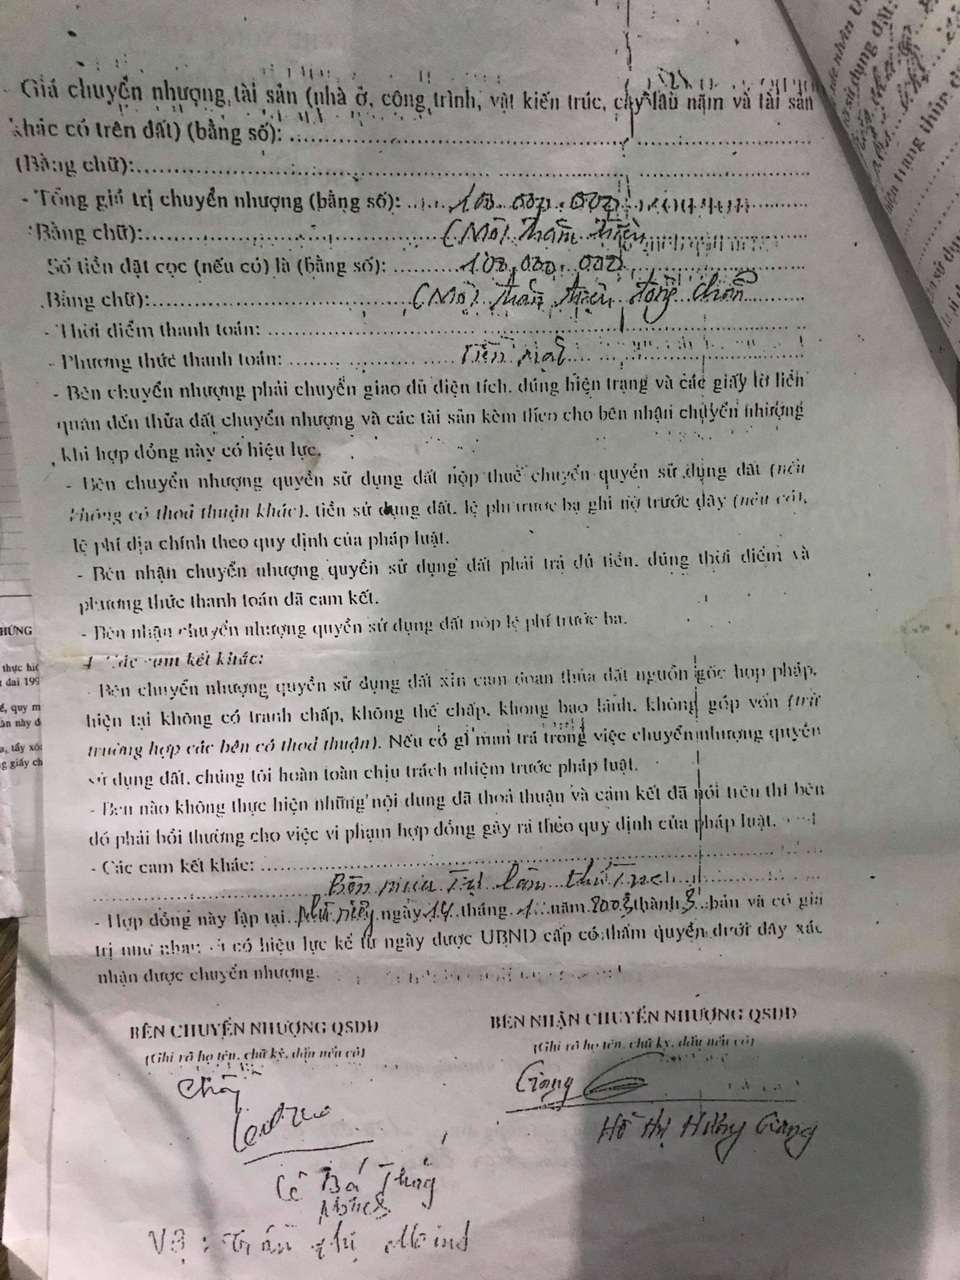 Giá chuyển nhượng tài sản (nhà ở, công trình, vật kiến trúc, cây lâu năm và tài sản
khác có trên đất) (bằng số):
(Bằng chữ):
- Tổng giá trị chuyển nhượng (bằng số): 100.000.000
Bằng chữ): (Một trăm triệu
Số tiền đặt cọc (nếu có) là (bằng số): 100,000,000
Bằng chữ): (Một trăm triệu đồng chẵn
- Thời điểm thanh toán:
- Phương thức thanh toán: Tiền mặt
- Bên chuyển nhượng phải chuyển giao đủ diện tích, đúng hiện trạng và các giấy tờ liên
quan đến thửa đất chuyển nhượng và các tài sản kèm theo cho bên nhận chuyển nhượng
khi hợp đồng này có hiệu lực.
- Bên chuyển nhượng quyền sử dụng đất nộp thuế chuyển quyền sử dụng đất (nếu
không có thoả thuận khác), tiền sử dụng đất, lệ phí trước bạ ghi nợ trước đây (nếu có),
lệ phí địa chính theo quy định của pháp luật.
- Bên nhận chuyển nhượng quyền sử dụng đất phải trả đủ tiền, đúng thời điểm và
phương thức thanh toán đã cam kết.
- Bên nhận chuyển nhượng quyền sử dụng đất nộp lệ phí trước bạ.
4. Các cam kết khác:
- Bên chuyển nhượng quyền sử dụng đất xin cam đoan thửa đất nguồn gốc hợp pháp,
hiện tại không có tranh chấp, không thế chấp, không bảo lãnh, không góp vốn (trừ
trường hợp các bên có thoả thuận). Nếu có gì man trá trong việc chuyển nhượng quyền
sử dụng đất, chúng tôi hoàn toàn chịu trách nhiệm trước pháp luật.
- Bên nào không thực hiện những nội dung đã thoả thuận và cam kết đã nói trên thì bên
đó phải bồi thường cho việc vi phạm hợp đồng gây ra theo quy định của pháp luật.
- Các cam kết khác:
Bên mua Tự làm thủ Tục
- Hợp đồng này lập tại ngày 14 tháng 1 năm 2003 thành 3 bản và có giá
trị như nhau và có hiệu lực kể từ ngày được UBND cấp có thẩm quyền dưới đây xác
nhận được chuyển nhượng.
BÊN CHUYỂN NHƯỢNG QSDĐ
(Ghi rõ họ tên, chữ ký, dấu nếu có)
BÊN NHẬN CHUYỂN NHƯỢNG QSDĐ
(Ghi rõ họ tên, chữ ký, dấu nếu có)
Giang
Hồ Thị Hương Giang
Lê Bá
Vợ : Trần Thị
HỨNG
thực hiệ
đai 199
quy m
ần này đ
a, tẩy xóa
g giấy ch